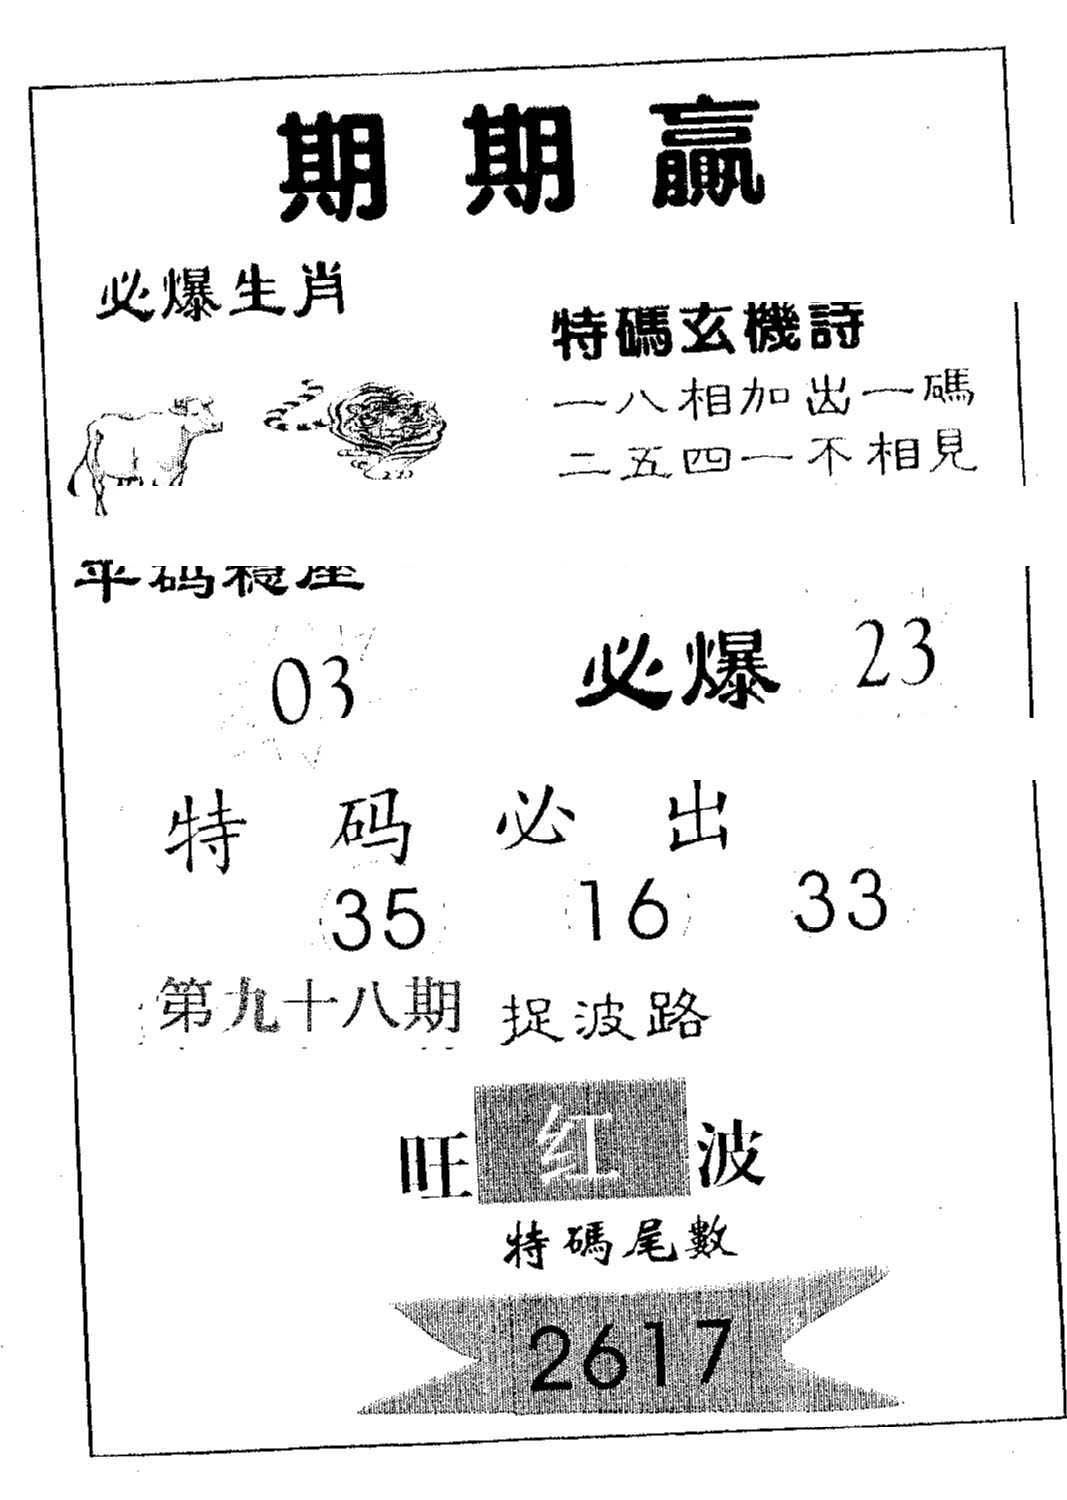 期期贏
必爆生肖
特碼玄機詩
一八相加出一碼
二五四一不相見
平码稳座
03
必爆 23
特码必出
35 16 33
第九十八期 捉波路
旺红波
特碼尾數
2617